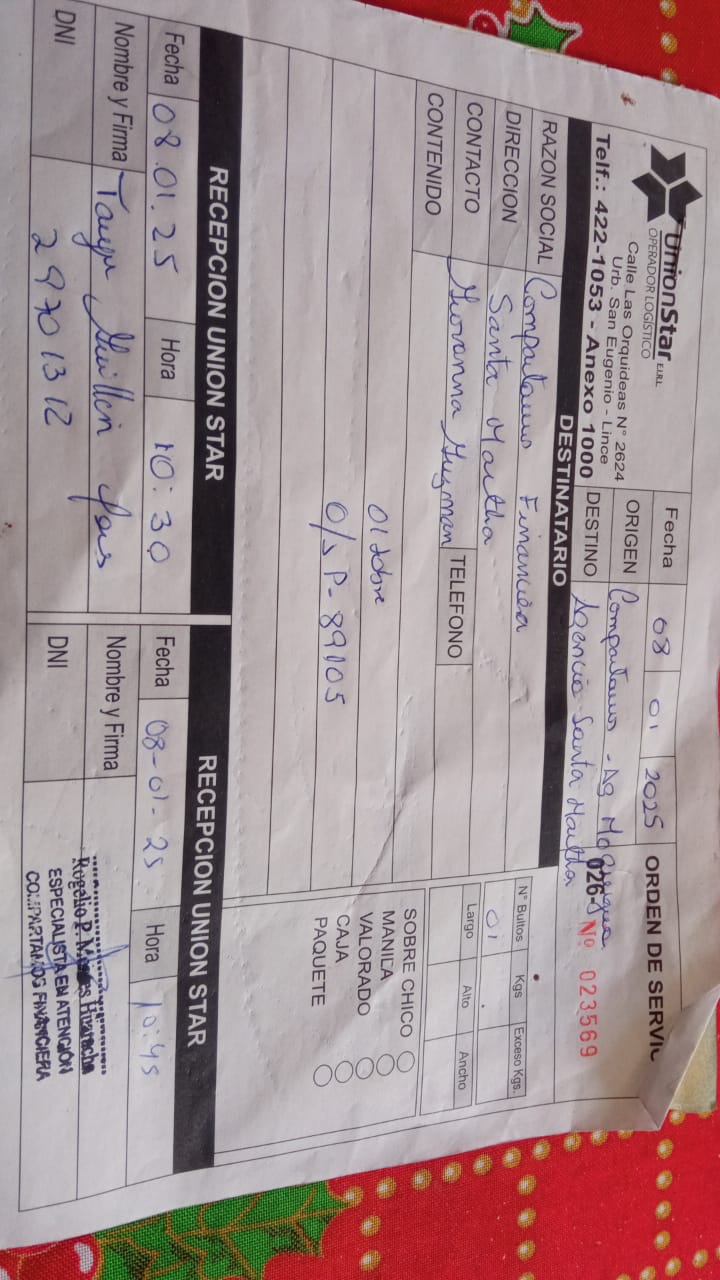 UnionStar E.I.R.L.
OPERADOR LOGÍSTICO
Calle Las Orquideas N° 2624
Urb. San Eugenio - Lince
Telf.: 422-1053 - Anexo 1000
Fecha 08 01 2025
ORIGEN Compartamos - Ag Moquegua
DESTINO Agencia Santa Martha
ORDEN DE SERVIC
026- Nº 023569
DESTINATARIO
RAZON SOCIAL Compartamos Financiera
DIRECCION Santa Martha
CONTACTO Giovanna Guzman TELEFONO
CONTENIDO
01 sobre
O/S P- 89105
N° Bultos Kgs Exceso Kgs.
01
Largo Alto Ancho
SOBRE CHICO
MANILA
VALORADO
CAJA
PAQUETE
RECEPCION UNION STAR
Fecha 08.01.25 Hora 10:30
Nombre y Firma
DNI 29701312
RECEPCION UNION STAR
Fecha 08-01-25 Hora 10:45
Nombre y Firma
DNI
Rogelio P.
ESPECIALISTA EN ATENCION
COMPARTAMOS FINANCIERA